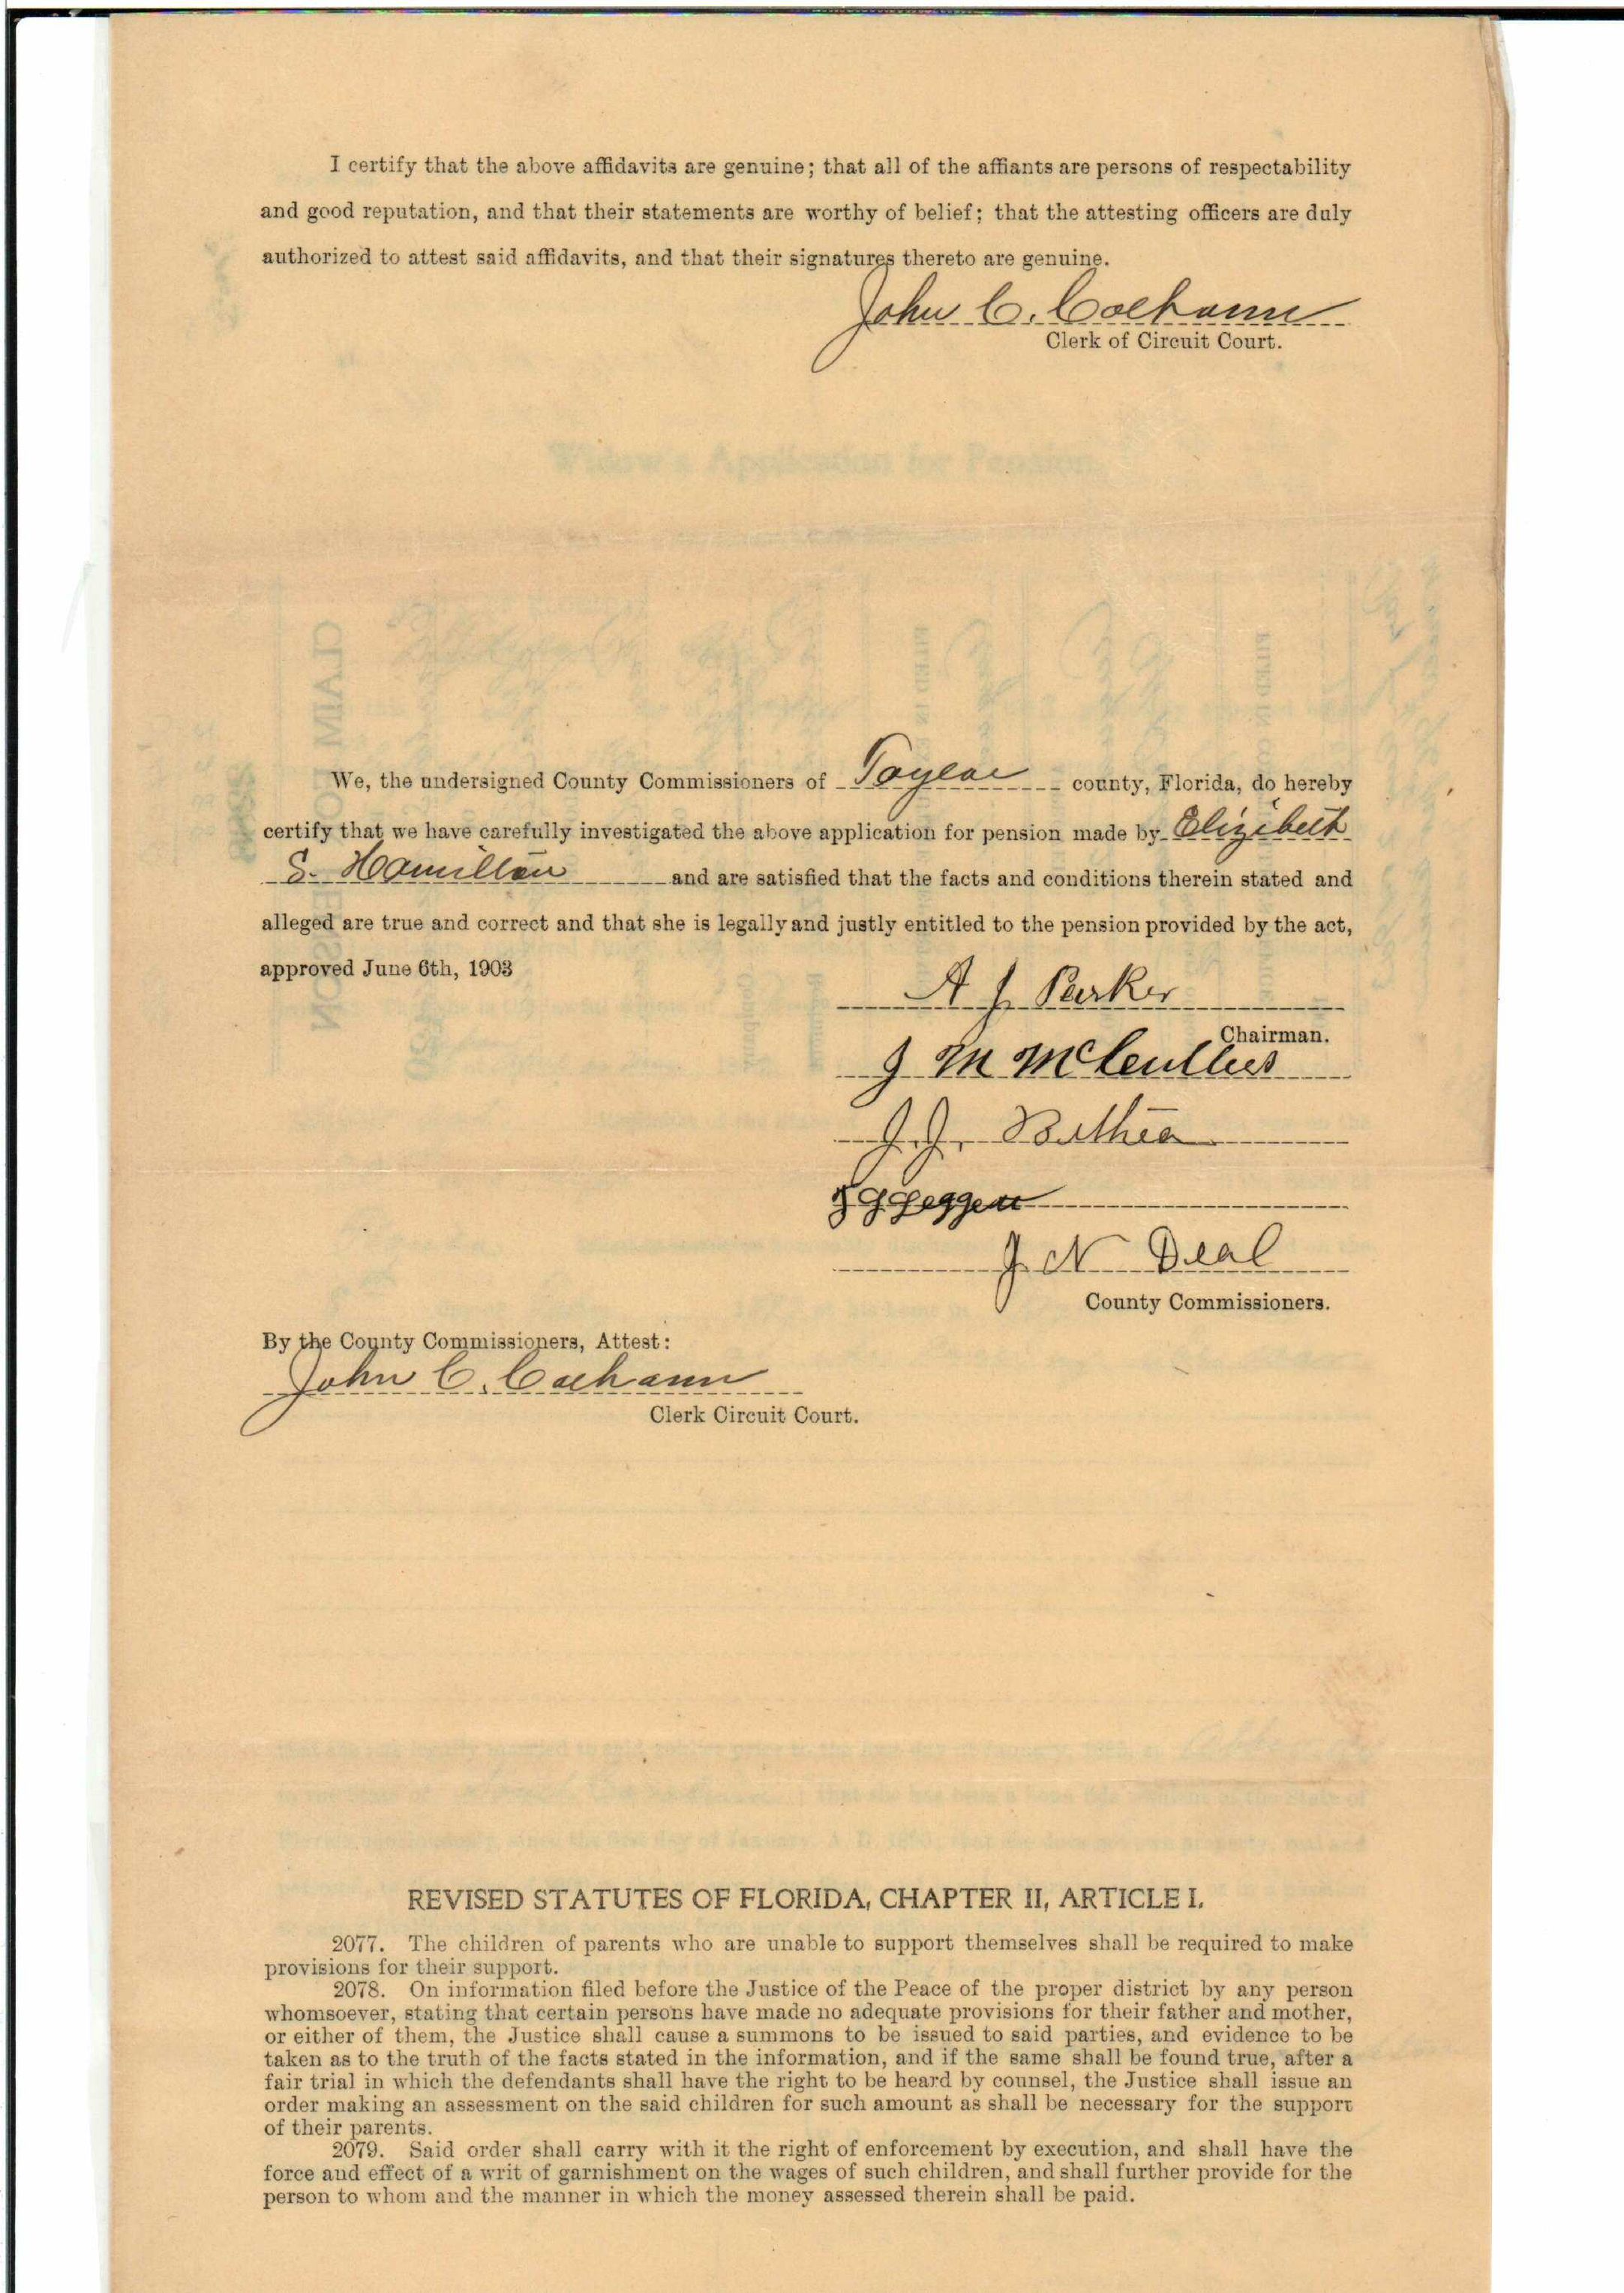 I certify that the above affidavits are genuine; that all of the affiants are persons of respectability
and good reputation, and that their statements are worthy of belief; that the attesting officers are duly
authorized to attest said affidavits, and that their signatures thereto are genuine.
John C. Calhoun
Clerk of Circuit Court.
Widow's Application for Pension.
We, the undersigned County Commissioners of Taylor county, Florida, do hereby
certify that we have carefully investigated the above application for pension made by Elizibeth
S. Hamilton and are satisfied that the facts and conditions therein stated and
alleged are true and correct and that she is legally and justly entitled to the pension provided by the act,
approved June 6th, 1903
A J Parker
Chairman.
J M
J. J. Bethea
Leggett
J N Deal
County Commissioners.
By the County Commissioners, Attest:
John C. Calhoun
Clerk Circuit Court.
REVISED STATUTES OF FLORIDA, CHAPTER II, ARTICLE I.
2077. The children of parents who are unable to support themselves shall be required to make
provisions for their support.
2078. On information filed before the Justice of the Peace of the proper district by any person
whomsoever, stating that certain persons have made no adequate provisions for their father and mother,
or either of them, the Justice shall cause a summons to be issued to said parties, and evidence to be
taken as to the truth of the facts stated in the information, and if the same shall be found true, after a
fair trial in which the defendants shall have the right to be heard by counsel, the Justice shall issue an
order making an assessment on the said children for such amount as shall be necessary for the support
of their parents.
2079. Said order shall carry with it the right of enforcement by execution, and shall have the
force and effect of a writ of garnishment on the wages of such children, and shall further provide for the
person to whom and the manner in which the money assessed therein shall be paid.